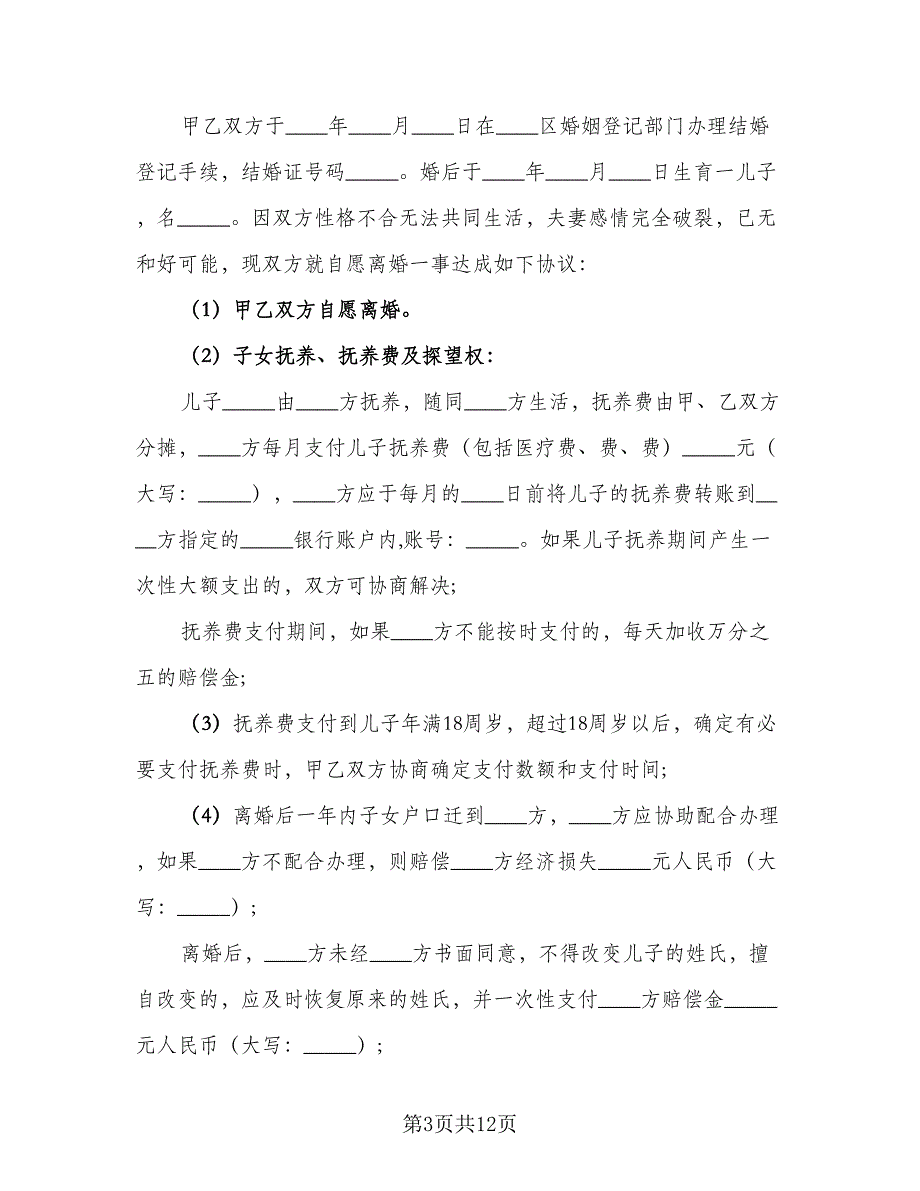 甲乙双方于____年____月____日在____区婚姻登记部门办理结婚
登记手续，结婚证号码_____。婚后于____年____月____日生育一儿子
，名_____。因双方性格不合无法共同生活，夫妻感情完全破裂，已无
和好可能，现双方就自愿离婚一事达成如下协议：
（1）甲乙双方自愿离婚。
（2）子女抚养、抚养费及探望权：
儿子_____由____方抚养，随同____方生活，抚养费由甲、乙双方
分摊，____方每月支付儿子抚养费（包括医疗费、费、费）_____元（
大写：_____），____方应于每月的____日前将儿子的抚养费转账到__
__方指定的_____银行账户内,账号：_____。如果儿子抚养期间产生一
次性大额支出的，双方可协商解决;
抚养费支付期间，如果____方不能按时支付的，每天加收万分之
五的赔偿金;
（3）抚养费支付到儿子年满18周岁，超过18周岁以后，确定有必
要支付抚养费时，甲乙双方协商确定支付数额和支付时间;
（4）离婚后一年内子女户口迁到____方，____方应协助配合办理
，如果____方不配合办理，则赔偿____方经济损失_____元人民币（大
写：_____）;
离婚后，____方未经____方书面同意，不得改变儿子的姓氏，擅
自改变的，应及时恢复原来的姓氏，并一次性支付____方赔偿金_____
元人民币（大写：_____）;
第3页共12页